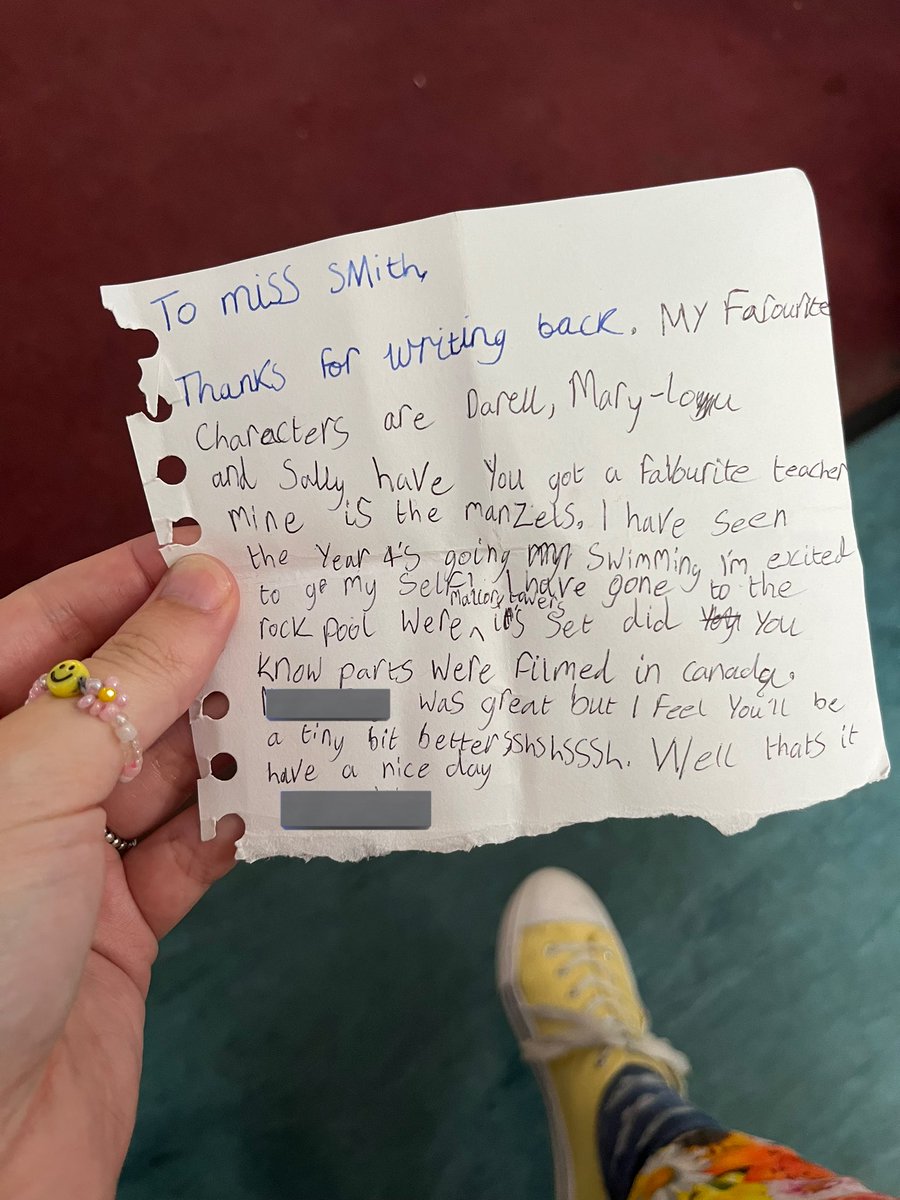 To miss SMith,
Thanks for writing back. MY Favourite
Characters are Darell, Mary-Lou
and Sally have You got a favourite teacher
mine is the manzels. I have seen
the Year 4's going swimming i'm excited
to go my self! I have gone to the
rock pool Were Mallory towers it's set did You
know parts were filmed in canada.
was great but I feel You'll be
a tiny bit better sshshsssh. Well thats it
have a nice day